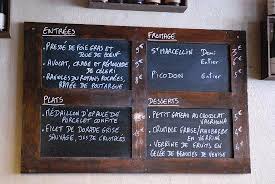 ENTRÉES
PRESSÉ DE FOIE GRAS ET
JOUE DE BOEUF
AVOCAT, CRABE ET RÉMOULADE
DE CÉLERI
RAVIOLES DU ROYANS POCHÉES,
RAPÉE DE POUTARGUE
FROMAGE
ST MARCELLIN Demi
Entier
PICODON Entier
PLATS
MÉDAILLON D'ÉPAULE DE
PORCELET CONFITE
FILET DE DORADE GRISE
SAUVAGE, JUS DE CRUSTACÉS
DESSERTS
PETIT GATEAU AU CHOCOLAT
VALRHONA
CRUMBLE FRAISE/RHUBARBE
EN VERRINE
VERRINE DE FRUITS EN
GELÉE DE DE VENISE